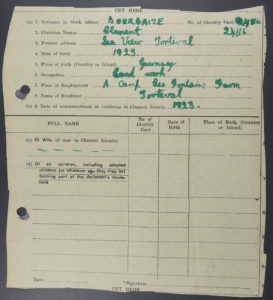 CUT HERE
(a) 1. Surname in block letters BOURGAIZE No. of Identity Card
2. Christian Names Clement 24116
3. Present address Sea View Torteval
4. Date of birth 1923.
5. Place of birth (Country or Island) Guernsey
6. Occupation Land work
7. Name of Employment A Camp Les Fontaine Farm
8. Name of Employer Torteval
(b) 9. Date of commencement of residence, in Channel Islands 1923.
FULL NAME No. of Identity Card Date of birth Place of Birth (Country or Island)
(c) Of Wife (if now in Channel Islands)
(d) Of all children, including adopted children (of whatever age they may be) forming part of the declarant's household
Date Signature
CUT HERE